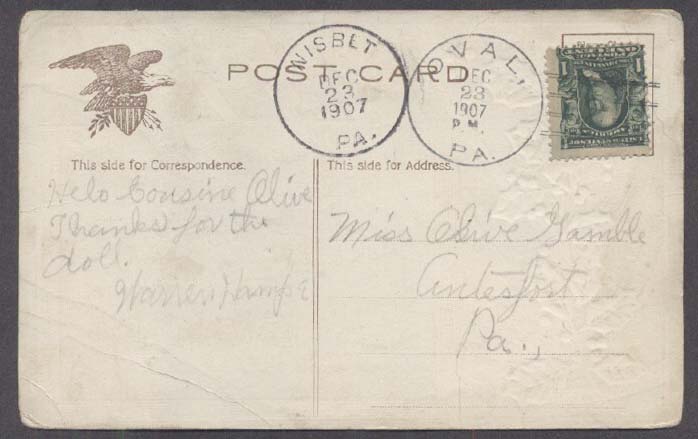 NISBET
DEC
23
1907
PA.
OVAL,
DEC
23
1907
P.M.
PA.
POST CARD
1
This side for Correspondence.
This side for Address.
Helo Cousine Olive
Thanks for the
doll.
Warren
Miss Olive Gamble
Antesfort
Pa.,